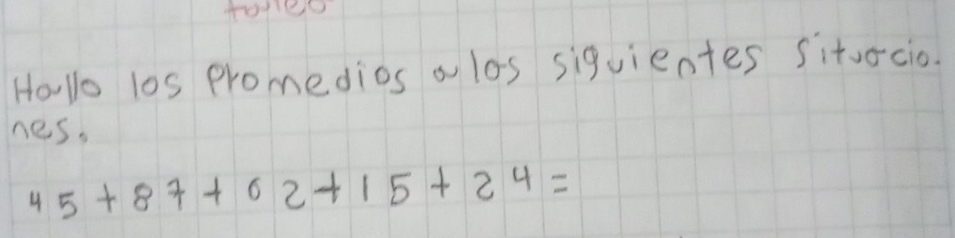 Hallo los Promedios a los siguientes situacio.
nes.
45+87+62+15+24=